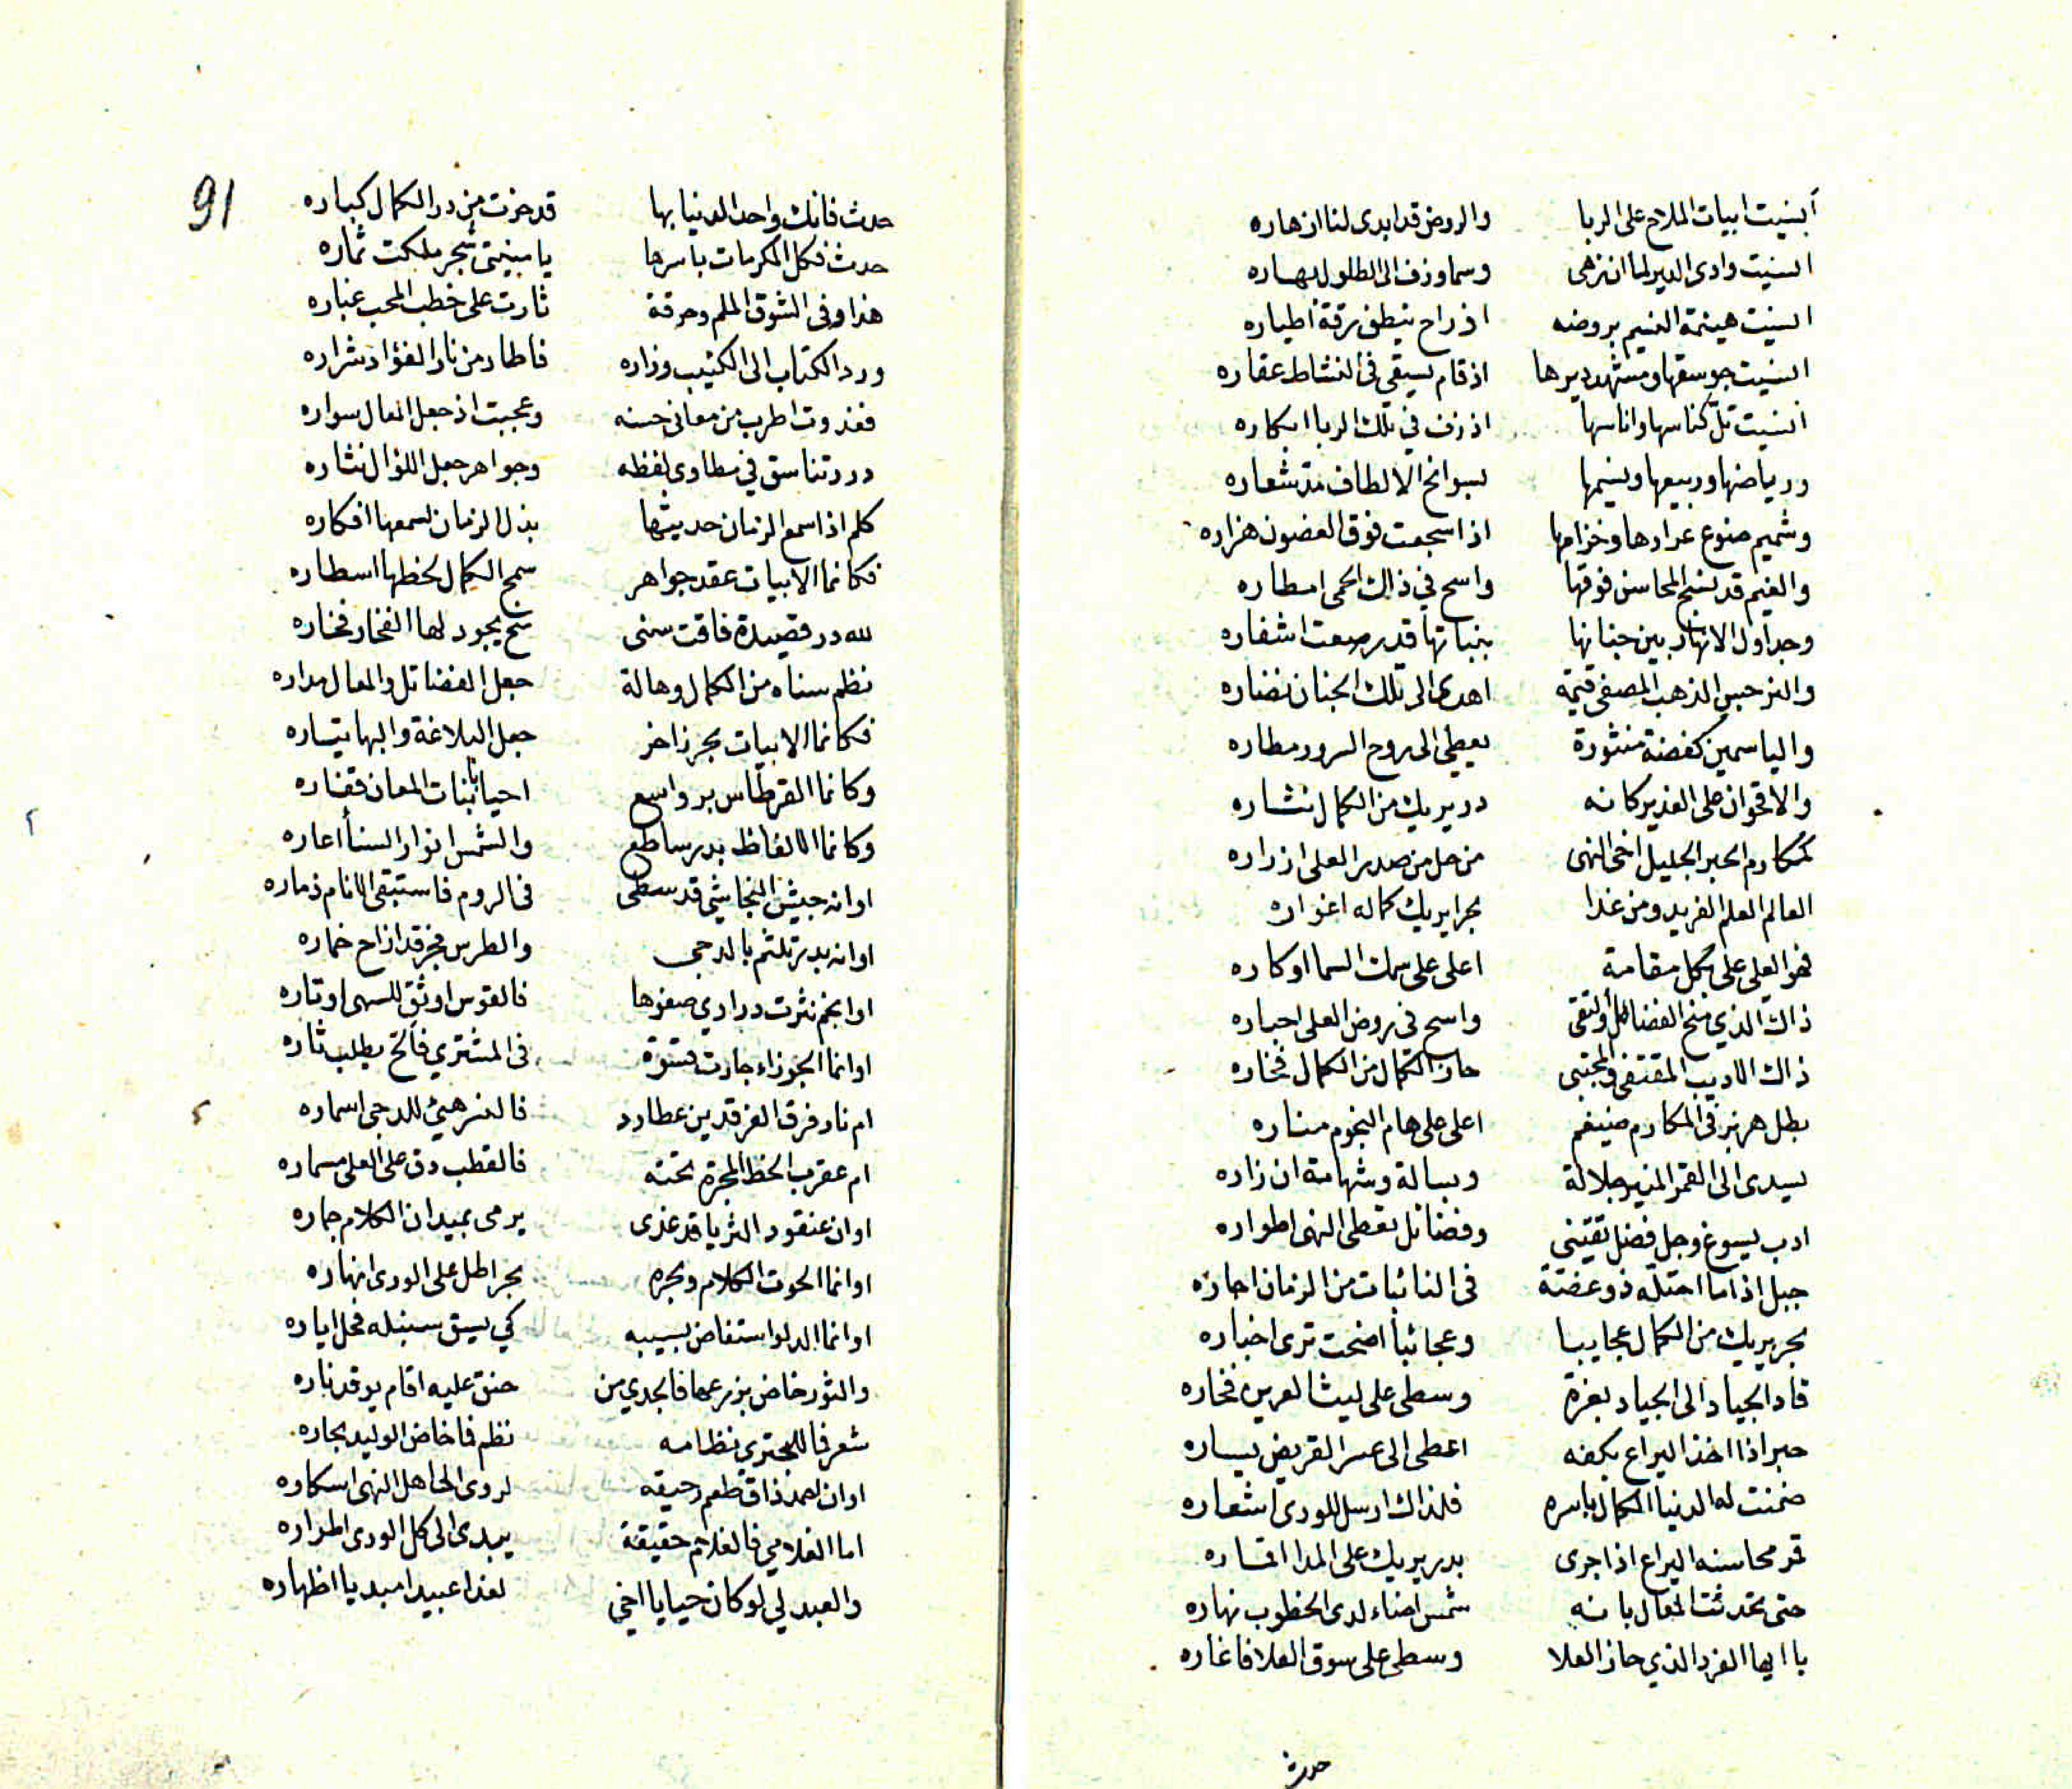 أنسيت ابيات الملاح على الربا والروض قد ابدى لنا ازهاره
انسيت وادى الدير لما ان زهى وسما وزف الى الطلول بهاره
انسيت هينمة النسيم بروضه اذ راح ينطق برقة أطياره
انسيت جوسقها ومشهد ديرها اذ قام يسقي في النشاط عقاره
انسيت تلّ كناسها واناسها اذ زف في تلك الربا ابكاره
ورياضها وربيعها ونسيمها بسوانح الالطاف شعاره
وشميم ضوع عرارها وخزامها اذا سجعت فوق الغصون هزاره
والغيم قد نسج المحاسن فوقها واسح في ذاك الحمى امطاره
وجداول الانهار بين جنانها بنباتها قد رصعت اشفاره
والنرجس الذهب المصفى قيمة اهدى الى تلك الجنان نضاره
والياسمين كفضة منثورة يعطي الى روح السرور مطاره
والاقحوان على الغدير كانه در يريك من الكمال نثاره
كمكارم الحبر الجليل اخى النهى من حل من صدر العلى ازراره
العالم العلم الفريد ومن غدا بحرا يريك كماله اغواره
فهو العلي على بكل مقامة اعلى على سمك السما اوكاره
ذاك الذي منح الفضائل والتقى واسح في روض العلى احباره
ذاك الاديب المقتفى والمجتبى حاز الكمال من الكمال فخاره
بطل هزبر في المكارم ضيغم اعلى على هام النجوم مناره
يسدى الى القمر المنير جلالة وبسالة وشهامة ان زاره
ادب يسوغ وجل فضل تقتني وفضائل تعطى النهى اطواره
جبل اذا ما احتله ذو غضة في النائبات من الزمان اجاره
بحر يريك من الكمال عجايبا وعجائبا اضحت ترى اخباره
قاد الجياد الى الجياد بغرة وسطى على ليث العرين فخاره
حبر اذا اخذ اليراع بكفه اعطى الى عسر القريض يساره
ضمنت له الدنيا الكمال باسره فلذاك ارسل للورى اشعاره
قمر محاسنه اليراع اذا جرى بدر يريك على المدا اقماره
حتى تحدثت المعال بانه شمس اضاء لدى الخطوب نهاره
يا ايها الفرد الذي حاز العلا وسطى على سوق العلا فاغاره
حدث
91
حدث فانك واحد الدنيا بها قد حزت من در الكمال كباره
حدث فكل المكرمات باسرها يا منيتي شجر ملكت ثماره
هذا وفى الشوق الملم وحرقة ثارت على خطب المحب غباره
ورد الكتاب الى الكئيب وزاره فاطار من نار الفؤاد شراره
فغدوت اطرب من معانى حسنه وعجبت اذ جعل المعال سواره
درر تناسق في مطاوى لفظه وجواهر جعل اللؤال نثاره
كلم اذا سمع الزمان حديثها بذل الزمان لسمعها افكاره
فكانما الابيات عقد جواهر سمح الكمال لخطها اسطاره
لله در قصيدة فاقت سنى سمح يجود لها الفخار فخاره
نظم سناه من الكمال وهالة جعل الفضائل والمعال مداره
فكانما الابيات بحر زاخر جعل البلاغة والبها تيساره
وكانما القرطاس بر واسع احيا بانبات المعان قفاره
وكانما الالفاظ بدر ساطع والشمس انوار السنا أعاره
اوانه جيش النجاشي قد سطى فى الروم فاستبقى الانام ذماره
اوانه بدر تلثم بالدجى والطرس فجر قد ازاح خماره
او انجم نثرت درارى صفوها فالقوس اوثق للسهى اوتاره
اوانما الجوزاء جارت فى المشتري يطلب ثاره
ام نار فرق الفرقدين عطارد فالنسر هيئ للدجى اسماره
ام عقرب الخط المجرة تحته فالقطب دق على العلى مسماره
اوان عنقود الثريا قد غذى يرمى بميدان الكلام جماره
اوانما الحوت الكلام وبحره بحر اطل على الورى انهاره
اوانما الدلو استفاض بسيبه كي يسق سنبله فحل اياره
والثور خاض بزرعها فالجدي من حنق عليه اقام يوقد ناره
شعر فما للبحترى نظامه نظم فما خاض الوليد بحاره
اوان احمد ذاق طعم رحيقه لروى لجاهل النهى اسكاره
اما الغلامي فالغلام حقيقة يبدى الى كل الورى اطراره
والعبدلي لو كان حيا يا اخي لغدا عبيدا مبديا اظهاره